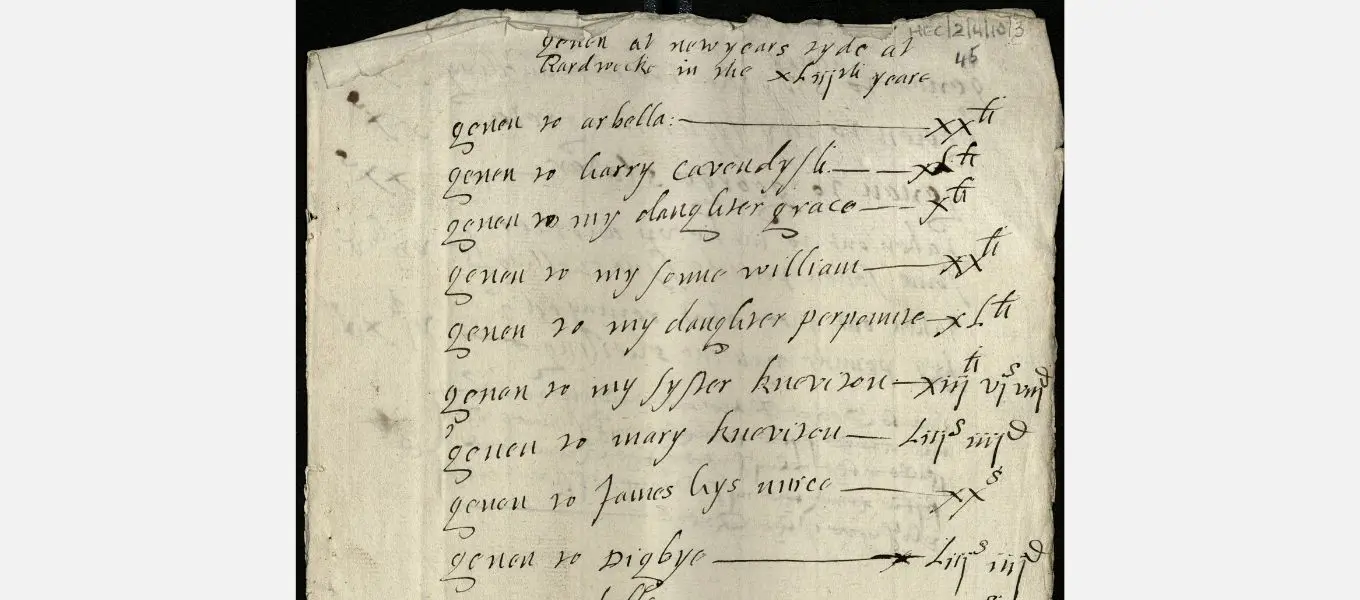 HEC/2/4/10/3
geven at newyears tyde at
45
Hardwecke in the xLiijth yeare
geven to arbella: xx li
geven to harry cavendysh xL li
geven to my daughter grace x li
geven to my sonne william xx li
geven to my daughter perpointe xL li
geven to my syster kneviton xiij li vjs viijd
geven to mary kneviton Liijs iiijd
geven to James hys nurce xxs
geven to Digbye Liijs iiijd